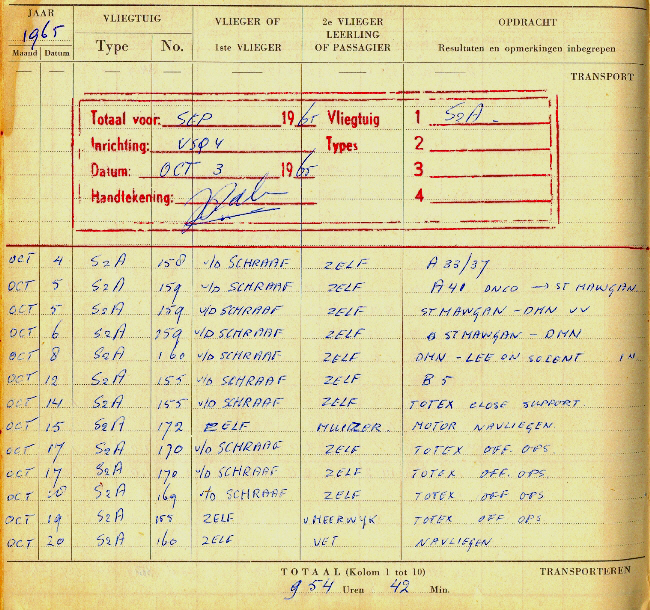 JAAR VLIEGTUIG VLIEGER OF 2e VLIEGER OPDRACHT
1965 LEERLING
Maand Datum Type No. 1ste VLIEGER OF PASSAGIER Resultaten en opmerkingen inbegrepen
TRANSPORT
Totaal voor: SEP 1965 Vliegtuig 1 S2A
Inrichting: VSQ4 Types 2
Datum: OCT 3 1965 3
Handtekening: 4
OCT 4 S2A 158 v/D SCHRAAF ZELF A 33/37
OCT 5 S2A 159 v/D SCHRAAF ZELF A 41 DNCO → ST MAWGAN
OCT 5 S2A 159 v/D SCHRAAF ZELF ST MAWGAN - DHN VV
OCT 6 S2A 159 v/D SCHRAAF ZELF ST MAWGAN - DHN
OCT 8 S2A 160 v/D SCHRAAF ZELF DHN - LEE ON SOLENT
OCT 12 S2A 155 v/D SCHRAAF ZELF B 5
OCT 14 S2A 155 v/D SCHRAAF ZELF TOTEX CLOSE SUPPORT
OCT 15 S2A 172 ZELF MULIZER MOTOR NAVLIEGEN
OCT 17 S2A 170 v/D SCHRAAF ZELF TOTEX OFF. OPS
OCT 17 S2A 170 v/D SCHRAAF ZELF TOTEX OFF. OPS
OCT S2A 169 v/D SCHRAAF ZELF TOTEX OFF OPS
OCT 19 S2A 155 ZELF v MEERWYK TOTEX OFF OPS
OCT 20 S2A 160 ZELF VET NAVLIEGEN
TOTAAL (Kolom 1 tot 10) TRANSPORTEREN
954 Uren 42 Min.